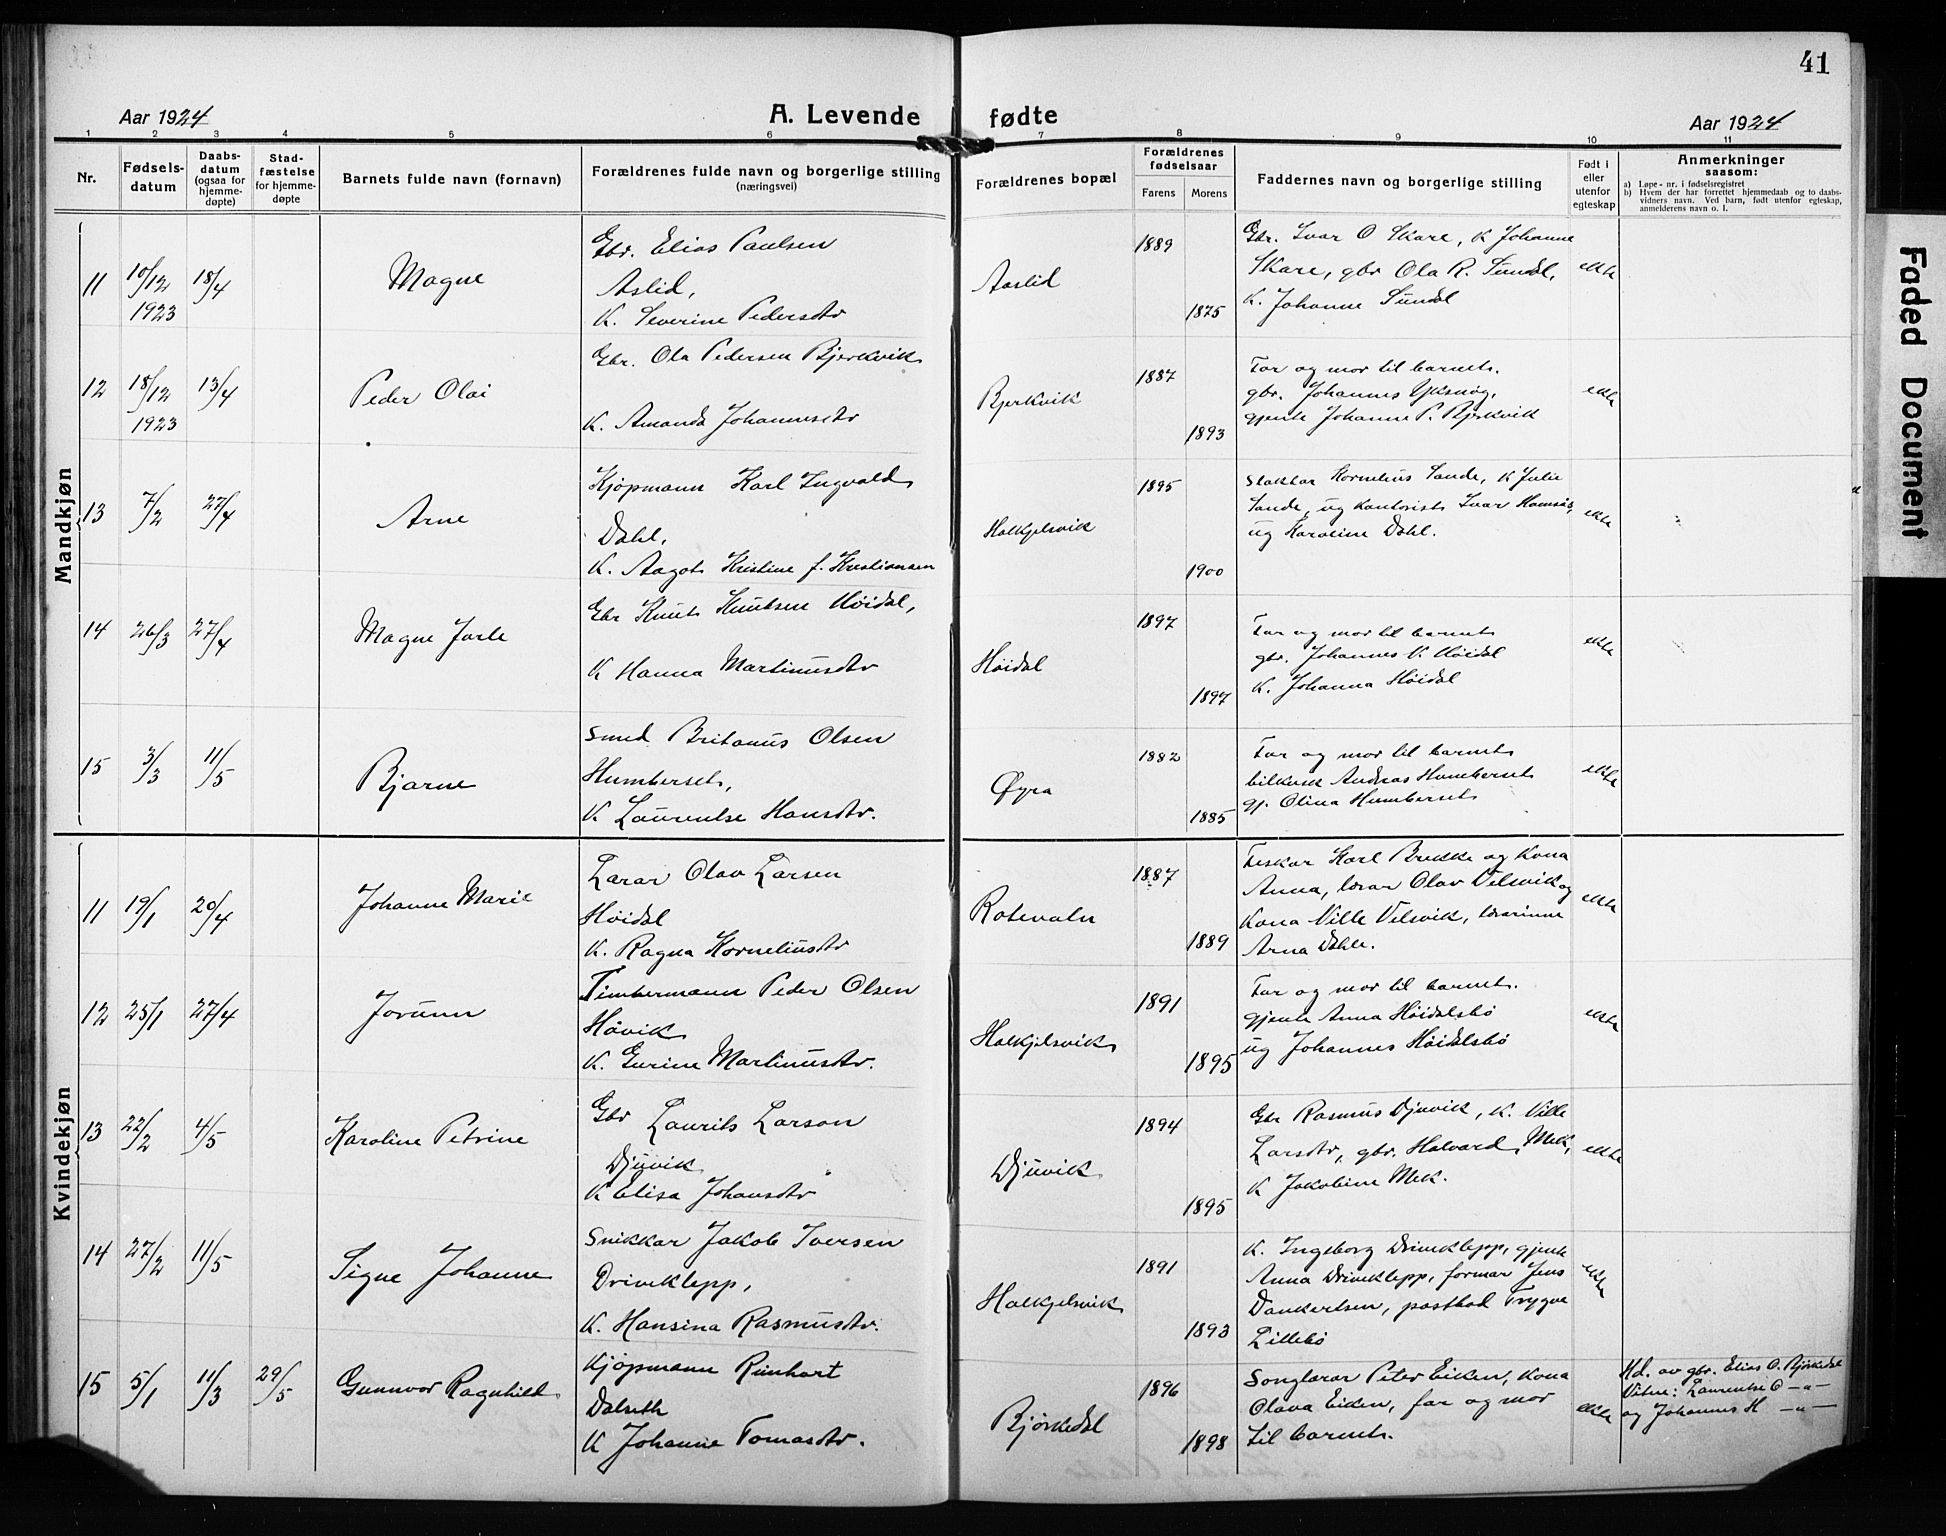 41
Aar 1924
A. Levende fødte
Aar 1924
1 2 3 4 5 6 7 8 9 10 11
Nr.
Fødsels-
datum
Daabs-
datum
(ogsaa for
hjemme-
døpte)
Stad-
fæstelse
for hjemme-
døpte
Barnets fulde navn (fornavn)
Forældrenes fulde navn og borgerlige stilling
(næringsvei)
Forældrenes bopæl
Forældrenes
fødselsaar
Farens Morens
Faddernes navn og borgerlige stilling
Født i
eller
utenfor
egteskap
Anmerkninger
saasom:
a) Løpe-nr. i fødselsregistret
b) Hvem der har forrettet hjemmedaab og to daabs-
vidners navn. Ved barn, født utenfor egteskap,
anmelderens navn o. l.
Mandkjøn
11 10/12 1923 18/4
Magne
Gbr. Elias Paulsen
Aslid,
K. Severine Pedersdtr
Aaslid
1889
1875
Gbr. Ivar O Skare, K Johanne
Skare, gbr Ola R. Sundal,
K. Johanne Sundal
ekte
12 18/12 1923 13/4
Peder Olai
Gbr. Ola Pedersen Bjerkvik
K. Amanda Johannesdtr
Bjerkvik
1887
1893
Far og mor til barnet.
gbr. Johannes Yksnøy,
gjente Johanne P. Bjerkvik
ekte
13 7/2 27/4
Arne
Kjøpmann Karl Ingvald
Dahl,
K. Aagot Kristine f. Kristiansen
Halkjelsvik
1895
1900
Slaktar Kornelius Sande, K Julie
Sande, ug kontorist Ivar Hamsås,
ug Karoline Dahl.
ekte
14 26/3 27/4
Magne Jarle
Gbr Knut Knutsen Høidal,
K Hanna Martinusdtr
Høidal
1897
1897
Far og mor til barnet
gbr. Johannes K. Høidal
K. Johanna Høidal
ekte
15 3/3 11/5
Bjarne
Smed Britanus Olsen
Humberset,
K Laurentse Hansdtr.
Øyra
1882
1885
Far og mor til barnet
bilkusk Andreas Humberset
gj. Olina Humberset
ekte
Kvindekjøn
11 19/1 20/4
Johanne Marie
Lærar Olav Larsen
Høidal
K. Ragna Korneliusdtr
Rotevatn
1887
1889
Fiskar Karl Brekke og Kona
Anna, lærar Olav Velsvik og
Kona Ville Velsvik, lærarinne
Arna Dahle.
ekte
12 25/1 27/4
Jorunn
Timbermann Peder Olsen
Håvik
K. Gurine Martinusdtr.
Halkjelsvik
1891
1895
Far og mor til barnet.
gjente Anna Høidalsbø
ug Johannes Høidalsbø
ekte
13 22/2 4/5
Karoline Petrine
Gbr Laurits Larson
Djuvik
K Elisa Johansdtr
Djuvik
1894
1895
Gbr Rasmus Djuvik, K. Ville
Larsdtr, gbr. Halvard Mek,
K Jakobine Mek.
ekte
14 27/2 11/5
Signe Johanne
Snikkar Jakob Iversen
Driveklepp,
K. Hansina Rasmusdtr.
Halkjelsvik
1891
1893
K. Ingeborg Driveklepp, gjente
Anna Driveklepp, formar Jens
Dankertsen, postbod Trygve
Lillebø
ekte
15 5/1 11/3 29/5
Gunnvor Ragnhild
Kjøpmann Reinhart
Dalseth
K Johanne Tomasdtr.
Bjørkedal
1896
1898
Songlærar Peter Eiken, kona
Olava Eiken, far og mor
til barnet.
ekte
Hd. av gbr. Elias O. Bjørkedal
Vitne: Laurentse O –„–
og Johannes H –„–
Faded Document